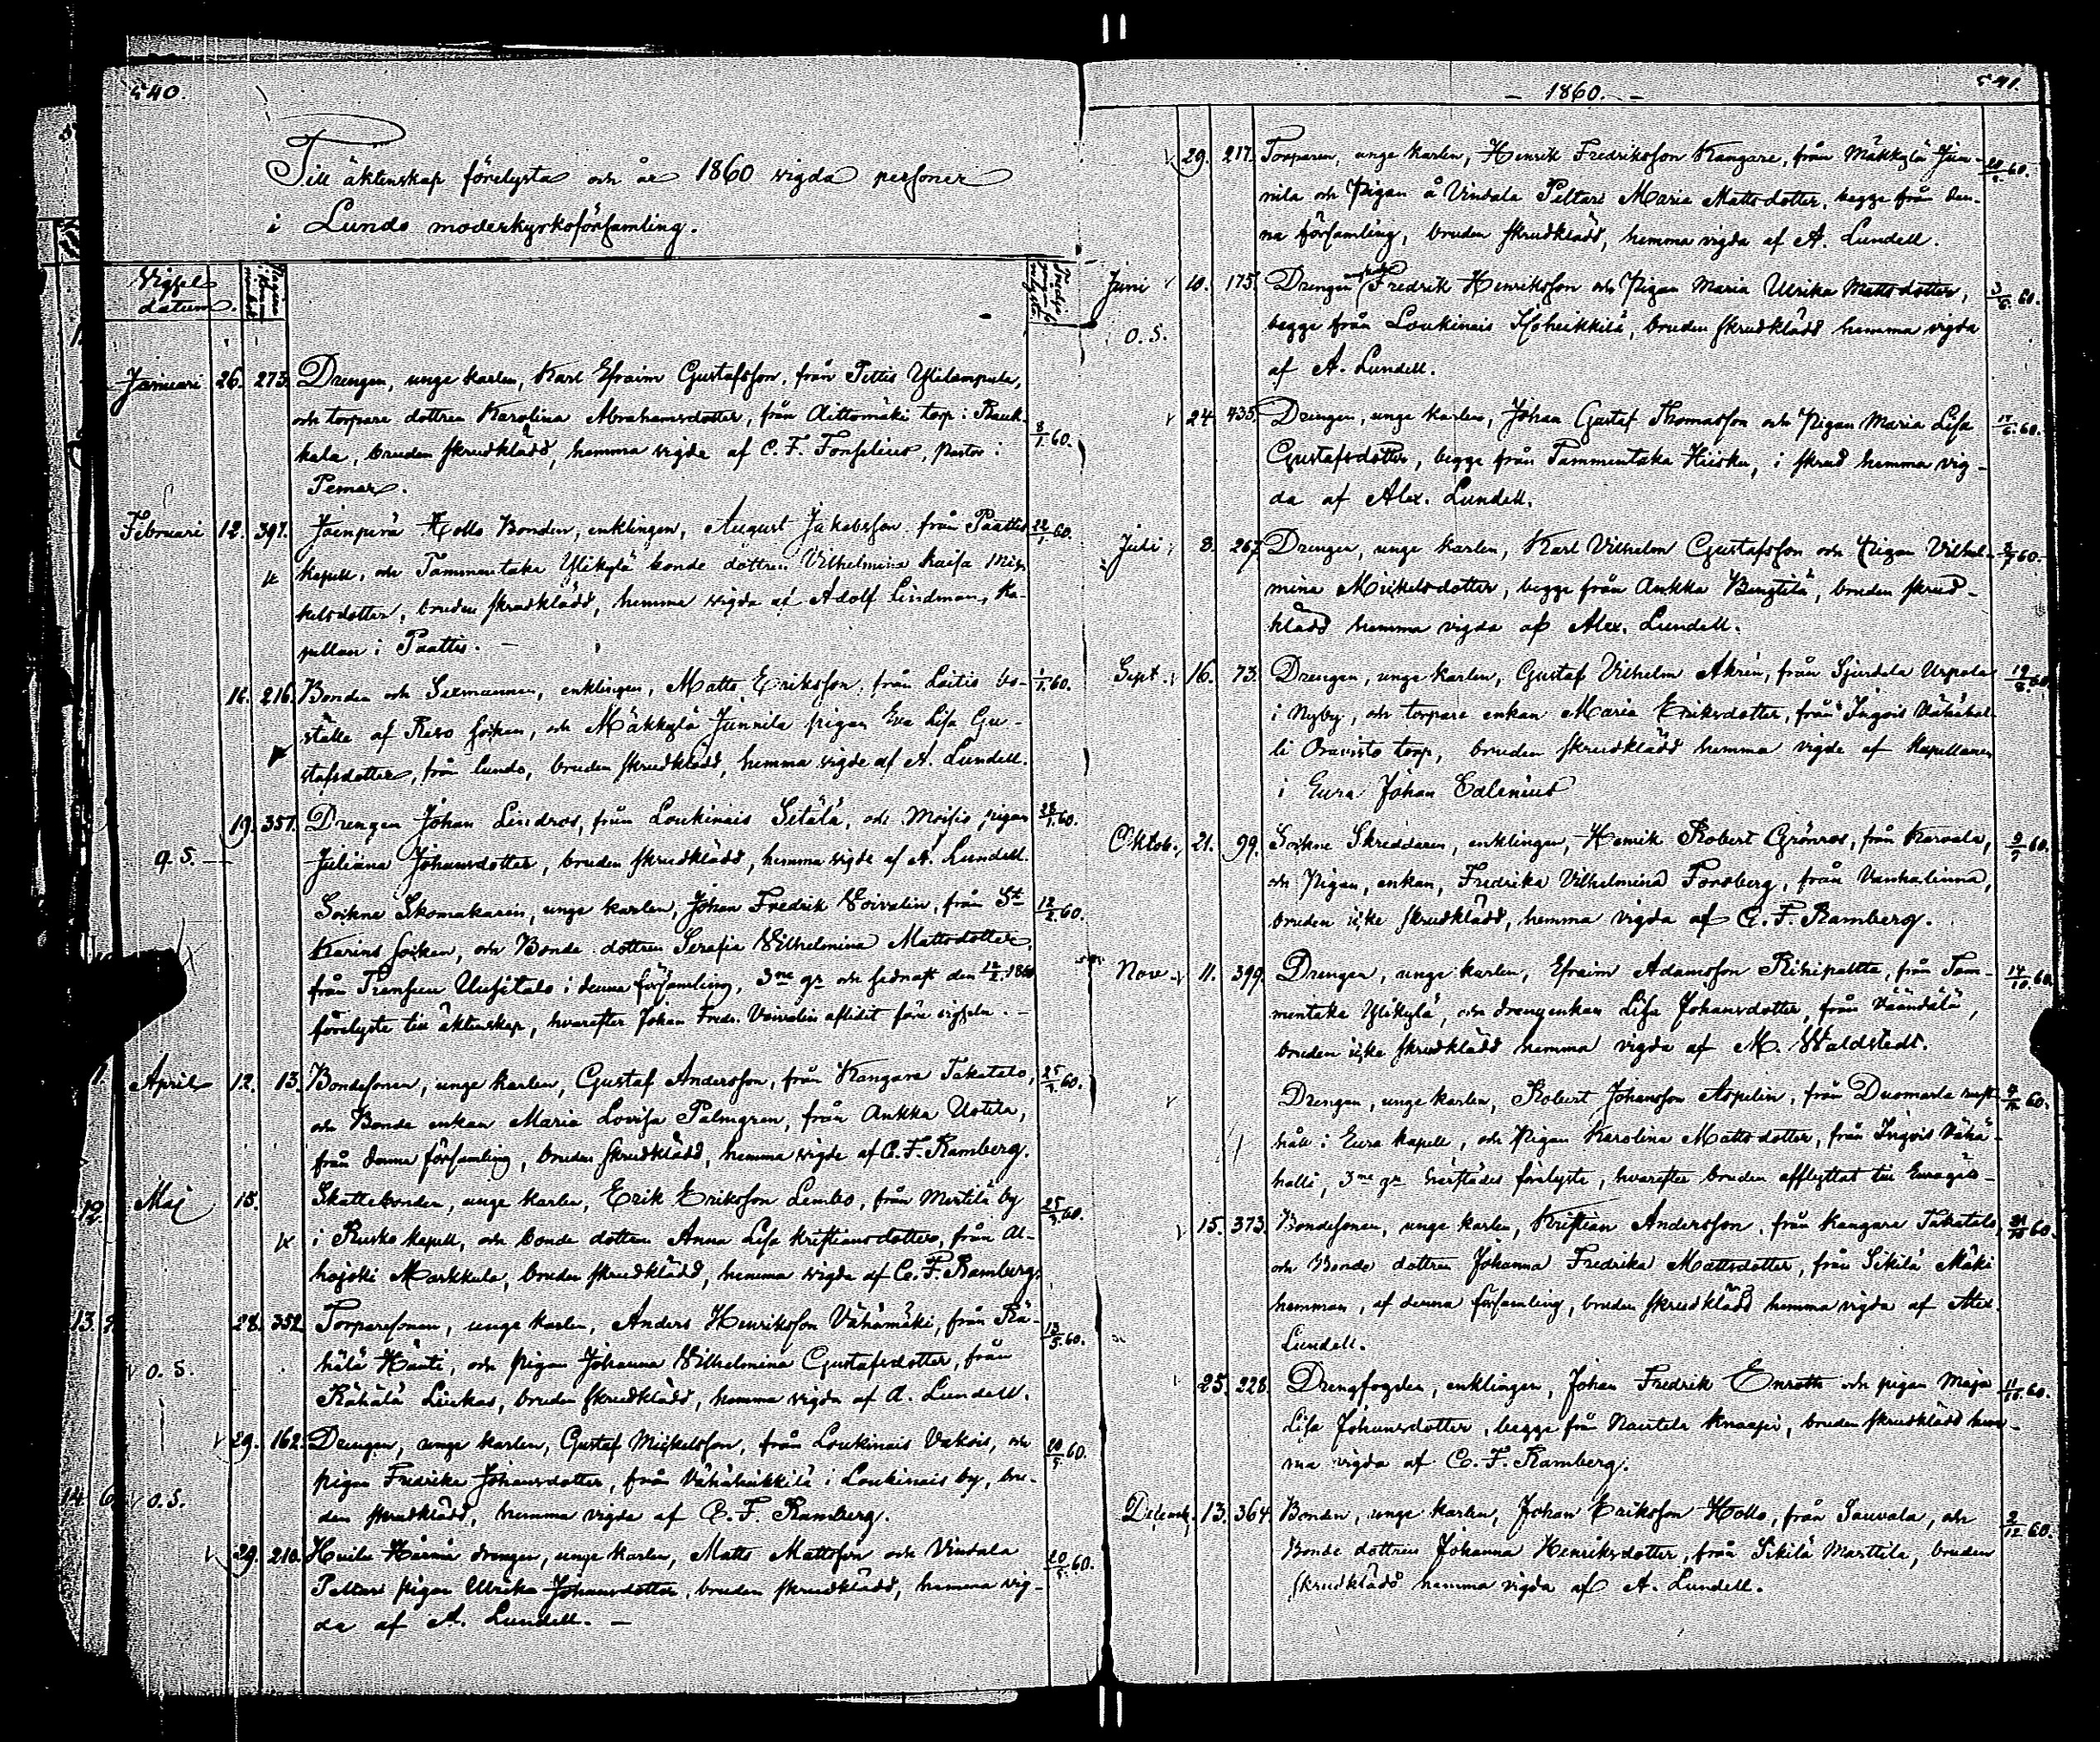 540.
Till äktenskap förelysta och år 1860 vigda personer
i Lundo moderkyrkoförsamling.
Vigsel
datum.
Januari 26. 273. Drengen, unge karlen, Karl Efraim Gustafsson, från Pettis Ylilempula,
och torpare dottren Karolina Abrahamsdotter, från Aittomäki torp i Rauk-
kala, bruden skrudklädd, hemma vigda af C. F. Fonselius, pastor i 8/1 60.
Pemar.
Februari 12. 397. Hollo Bonden, enklingen, August Jakobsson från Paattis 22/1 60.
kapell, och Tammentaka Ylikylä bonde dottren Vilhelmina Kaisa Mic-
kelsdotter, bruden skrudklädd, hemma vigda af Adolf Lindman, Ka-
pellan i Paattis. —
12. 216. Bonden och Sexmannen, enklingen, Matts Eriksson, från Laitis bo- 1/1 60.
ställe af Reso socken, och Mäkkylä Junnila pigan Eva Lisa Gu-
stafsdotter, från Lundo, bruden skrudklädd, hemma vigde af A. Lundell.
19. 357. Drengen Johan Lindros, från Loukinais Sitälä, och Moisio pigan 28/1 60.
Juliana Johansdotter, bruden skrudklädd, hemma vigde af A. Lundell.
Sockne Skomakaren, unge karlen, Johan Fredrik Voivalin, från St 12/2 60.
Karins socken, och Bonde dottren Serafia Vilhelmina Mattsdotter,
från Uusitalo i denna församling, 3ne gr och sednast den 12/2 1860
förelyste till äktenskap, hvarefter Johan Fredr. Voivalin aflidit före vigseln. —
April 12. 13. Bondesonen, unge karlen, Gustaf Andersson, från Kangare Takatalo, 25/3 60.
och Bonde enkan Maria Lovisa Palmgren, från Ankka Uotila,
från denna församling, bruden skrudklädd, hemma vigde af C. F. Ramberg.
Maj 15. Skattebonden, unge karlen, Erik Eriksson Lembo, från Mertilä by 25/3 60.
i Rusko kapell, och bonde dottren Anna Lisa Kristiansdotter, från Al-
hojoki Markkula, bruden skrudklädd, hemma vigda af C. F. Ramberg.
28. 352. Torparesonen, unge karlen, Anders Henriksson Vähämäki, från Rä- 13/5 60.
o. S. hälä Hänti, och pigan Johanna Vilhelmina Gustafsdotter, från
Rähälä Liukas, bruden skrudklädd, hemma vigda af A. Lundell.
29. 162. Drengen, unge karlen, Gustaf Mickelsson, från Loukinais Vakois, och 20/5 60.
o. S. pigan Fredrika Johansdotter, från Vähäheikkilä i Loukinais by, bru-
den skrudklädd, hemma vigda af C. F. Ramberg.
29. 210. Huila Härmä drengen, unge karlen, Matts Mattsson och Vindala 20/5 60.
Peltari pigan Ulrika Johansdotter, bruden skrudklädd, hemma vig-
da af A. Lundell. —
— 1860. —
541.
29. 217. Torparen, unge karlen, Henrik Fredriksson Kangare, från Mäkkylä Jun-
nila och Pigan å Vindala Peltari Maria Mattsdotter, begge från den-
na församling, bruden skrudklädd, hemma vigda af A. Lundell.
Juni 10. 175. Drengen Fredrik Henriksson och Pigan Maria Ulrika Mattsdotter, 3/6 60.
o. S. begge från Loukinais Isoheikkilä, bruden skrudklädd hemma vigda
af A. Lundell.
24. 435. Drengen, unge karlen, Johan Gustaf Thomasson och Pigan Maria Lisa 17/6 60.
Gustafsdotter, begge från Tammentaka Hiiska, i skrud hemma vig-
da af Alex. Lundell.
Juli 8. 267. Drengen, unge karlen, Karl Vilhelm Gustafsson och Pigan Vilhel-
mina Mickelsdotter, begge från Ankka Bengtilä, bruden skrud-
klädd hemma vigda af Alex. Lundell.
Sept. 16. 73. Drengen, unge karlen, Gustaf Vilhelm Akrén, från Sjurdala Urpola 19/8 60.
i Nyby, och torpare enkan Maria Eriksdotter, från Ingois Vähähal-
li Oravisto torp, bruden skrudklädd hemma vigde af Kapellanen
i Eura Johan Edlenius
Oktob. 21. 99. Sockne Skreddaren, enklingen, Henrik Robert Grönros, från Karvala, 9/9 60.
och Pigan, enkan, Fredrika Vilhelmina Forsberg, från Vanhalinna,
bruden icke skrudklädd, hemma vigda af C. F. Ramberg.
Nov. 11. 399. Drengen, unge karlen, Efraim Adamsson Rihipaltta, från Tam- 14/10 60.
mentaka Ylikylä, och drengenkan Lisa Johansdotter, från Väändälä,
bruden icke skrudklädd hemma vigda af M. Waldstedt.
Drengen, unge karlen, Robert Johansson Aspelin, från Duomarla rust-
håll i Eura kapell, och Pigan Karolina Mattsdotter, från Ingois Vähä-
halli, 3ne gr härstädes förelyste, hvarefter bruden afflyttat till
15. 373. Bondesonen, unge karlen, Kristian Andersson, från Kangare Takatalo, 21/10 60.
och Bonde dottren Johanna Fredrika Mattsdotter, från Sikilä Mäki
hemman, af denna församling, bruden skrudklädd hemma vigda af Alex.
Lundell.
25. 228. Drengfogden, enklingen, Johan Fredrik Enroth och pigan Maja 11/11 60.
Lisa Johansdotter, begge från Nautela Knaapi, bruden skrudklädd hem-
ma vigda af C. F. Ramberg.
Decemb. 13. 364. Bonden, unge karlen, Johan Eriksson Hollo, från Sauvala, och 2/12 60.
Bonde dottren Johanna Henriksdotter, från Sikilä Marttila, bruden
skrudklädd hemma vigda af A. Lundell.